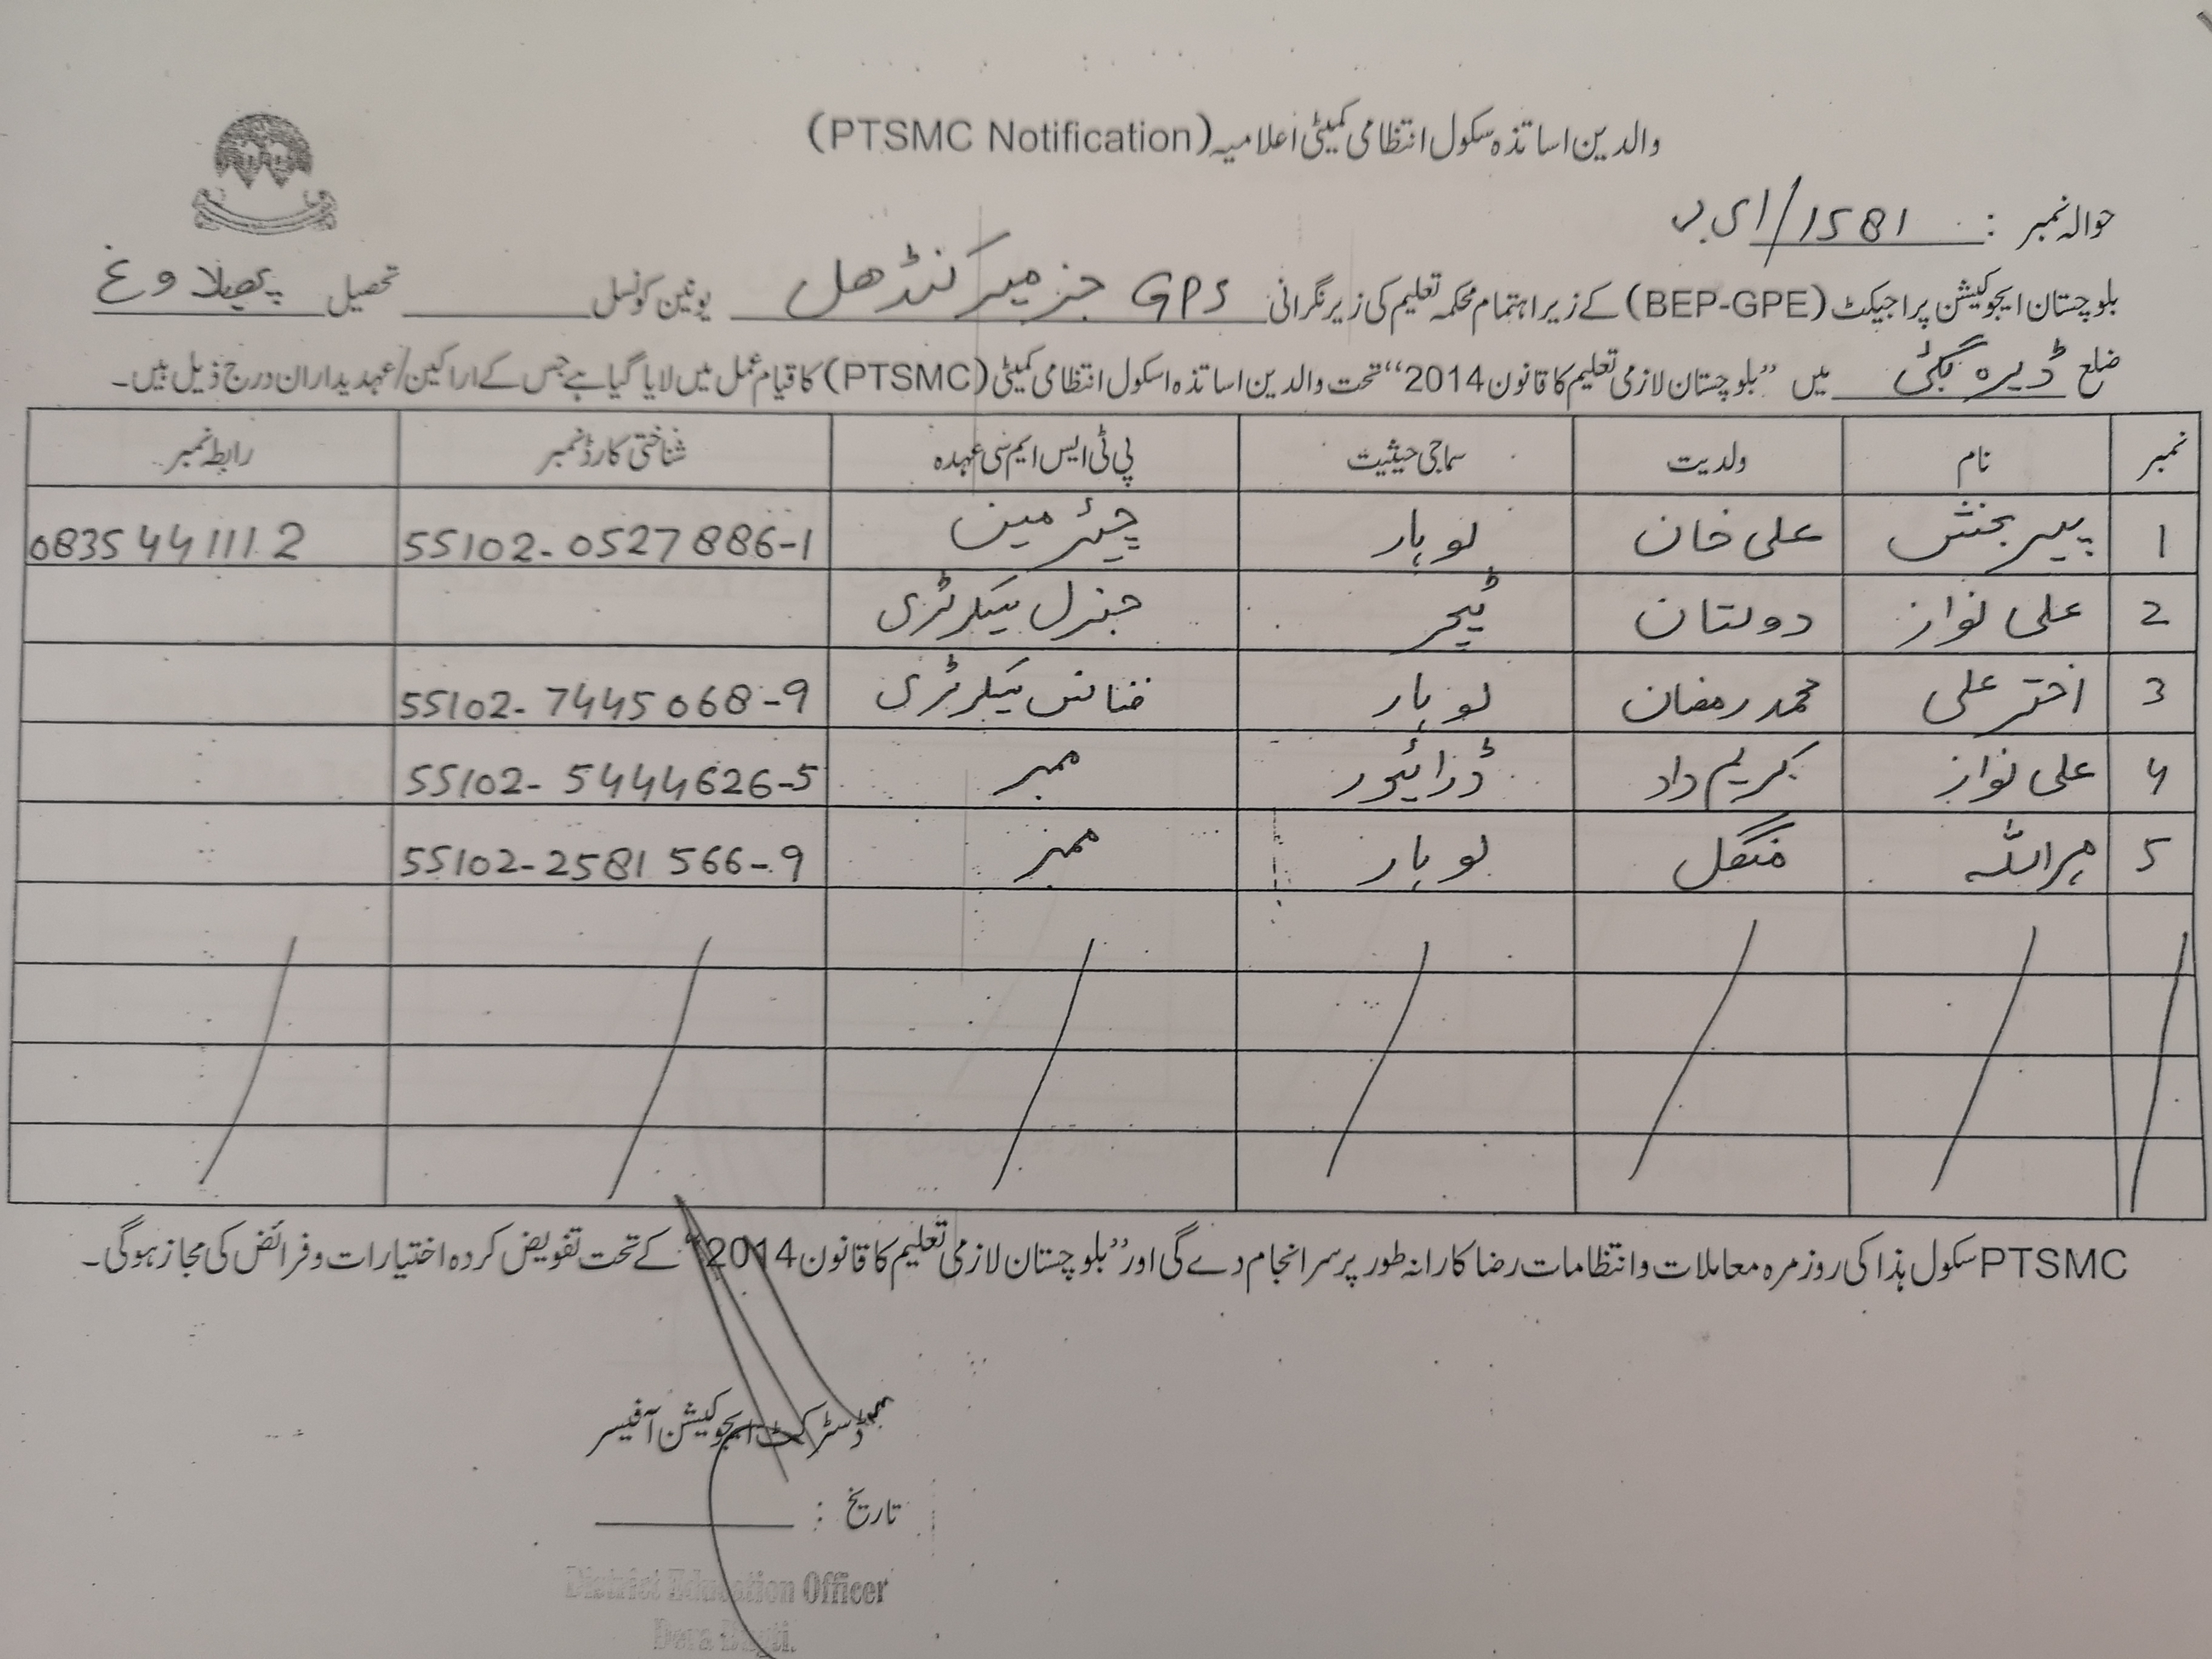 والدین اساتذہ سکول انتظامی کمیٹی اعلامیہ (PTSMC Notification)
حوالہ نمبر : 1581/ای بی
بلوچستان ایجوکیشن پراجیکٹ (BEP-GPE) کے زیر اہتمام محکمہ تعلیم کی زیر نگرانی GPS جز میر کنڈھل یونین کونسل ______ تحصیل پھیلاوغ
ضلع ڈیرہ بگٹی میں ”بلوچستان لازمی تعلیم کا قانون 2014“ تحت والدین اساتذہ اسکول انتظامی کمیٹی (PTSMC) کا قیام عمل میں لایا گیا ہے جس کے اراکین/عہدیداران درج ذیل ہیں۔
نمبر نام ولدیت سماجی حیثیت پی ٹی ایس ایم سی عہدہ شناختی کارڈ نمبر رابطہ نمبر
1 پیر بخش علی خان لوہار چیئرمین 55102-0527886-1 08354411112
2 علی نواز دولتان ٹیچر جنرل سیکرٹری
3 اختر علی محمد رمضان لوہار فنانس سیکرٹری 55102-7445068-9
4 علی نواز کریم داد ڈرائیور ممبر 55102-5444626-5
5 مہراللہ منگل لوہار ممبر 55102-2581566-9
PTSMC سکول ہذا کی روزمرہ معاملات و انتظامات رضاکارانہ طور پر سرانجام دے گی اور ”بلوچستان لازمی تعلیم کا قانون 2014“ کے تحت تفویض کردہ اختیارات و فرائض کی مجاز ہوگی۔
ڈسٹرکٹ ایجوکیشن آفیسر
تاریخ : ______
District Education Officer
Dera Bugti.